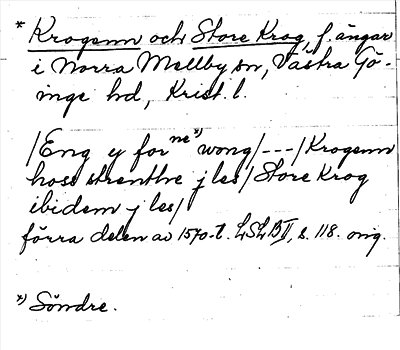 * Krogenn och Store Krog, f. ängar
i Norra Mellby sn, Västra Gö-
inge hd, Krist. l.
/Eng y for ne*) wong/---/Krogenn
hoss strenthe j les/Store Krog
ibidem j les/
förra delen av 1570-t. LSLBII, s. 118. orig.
*) Söndre.